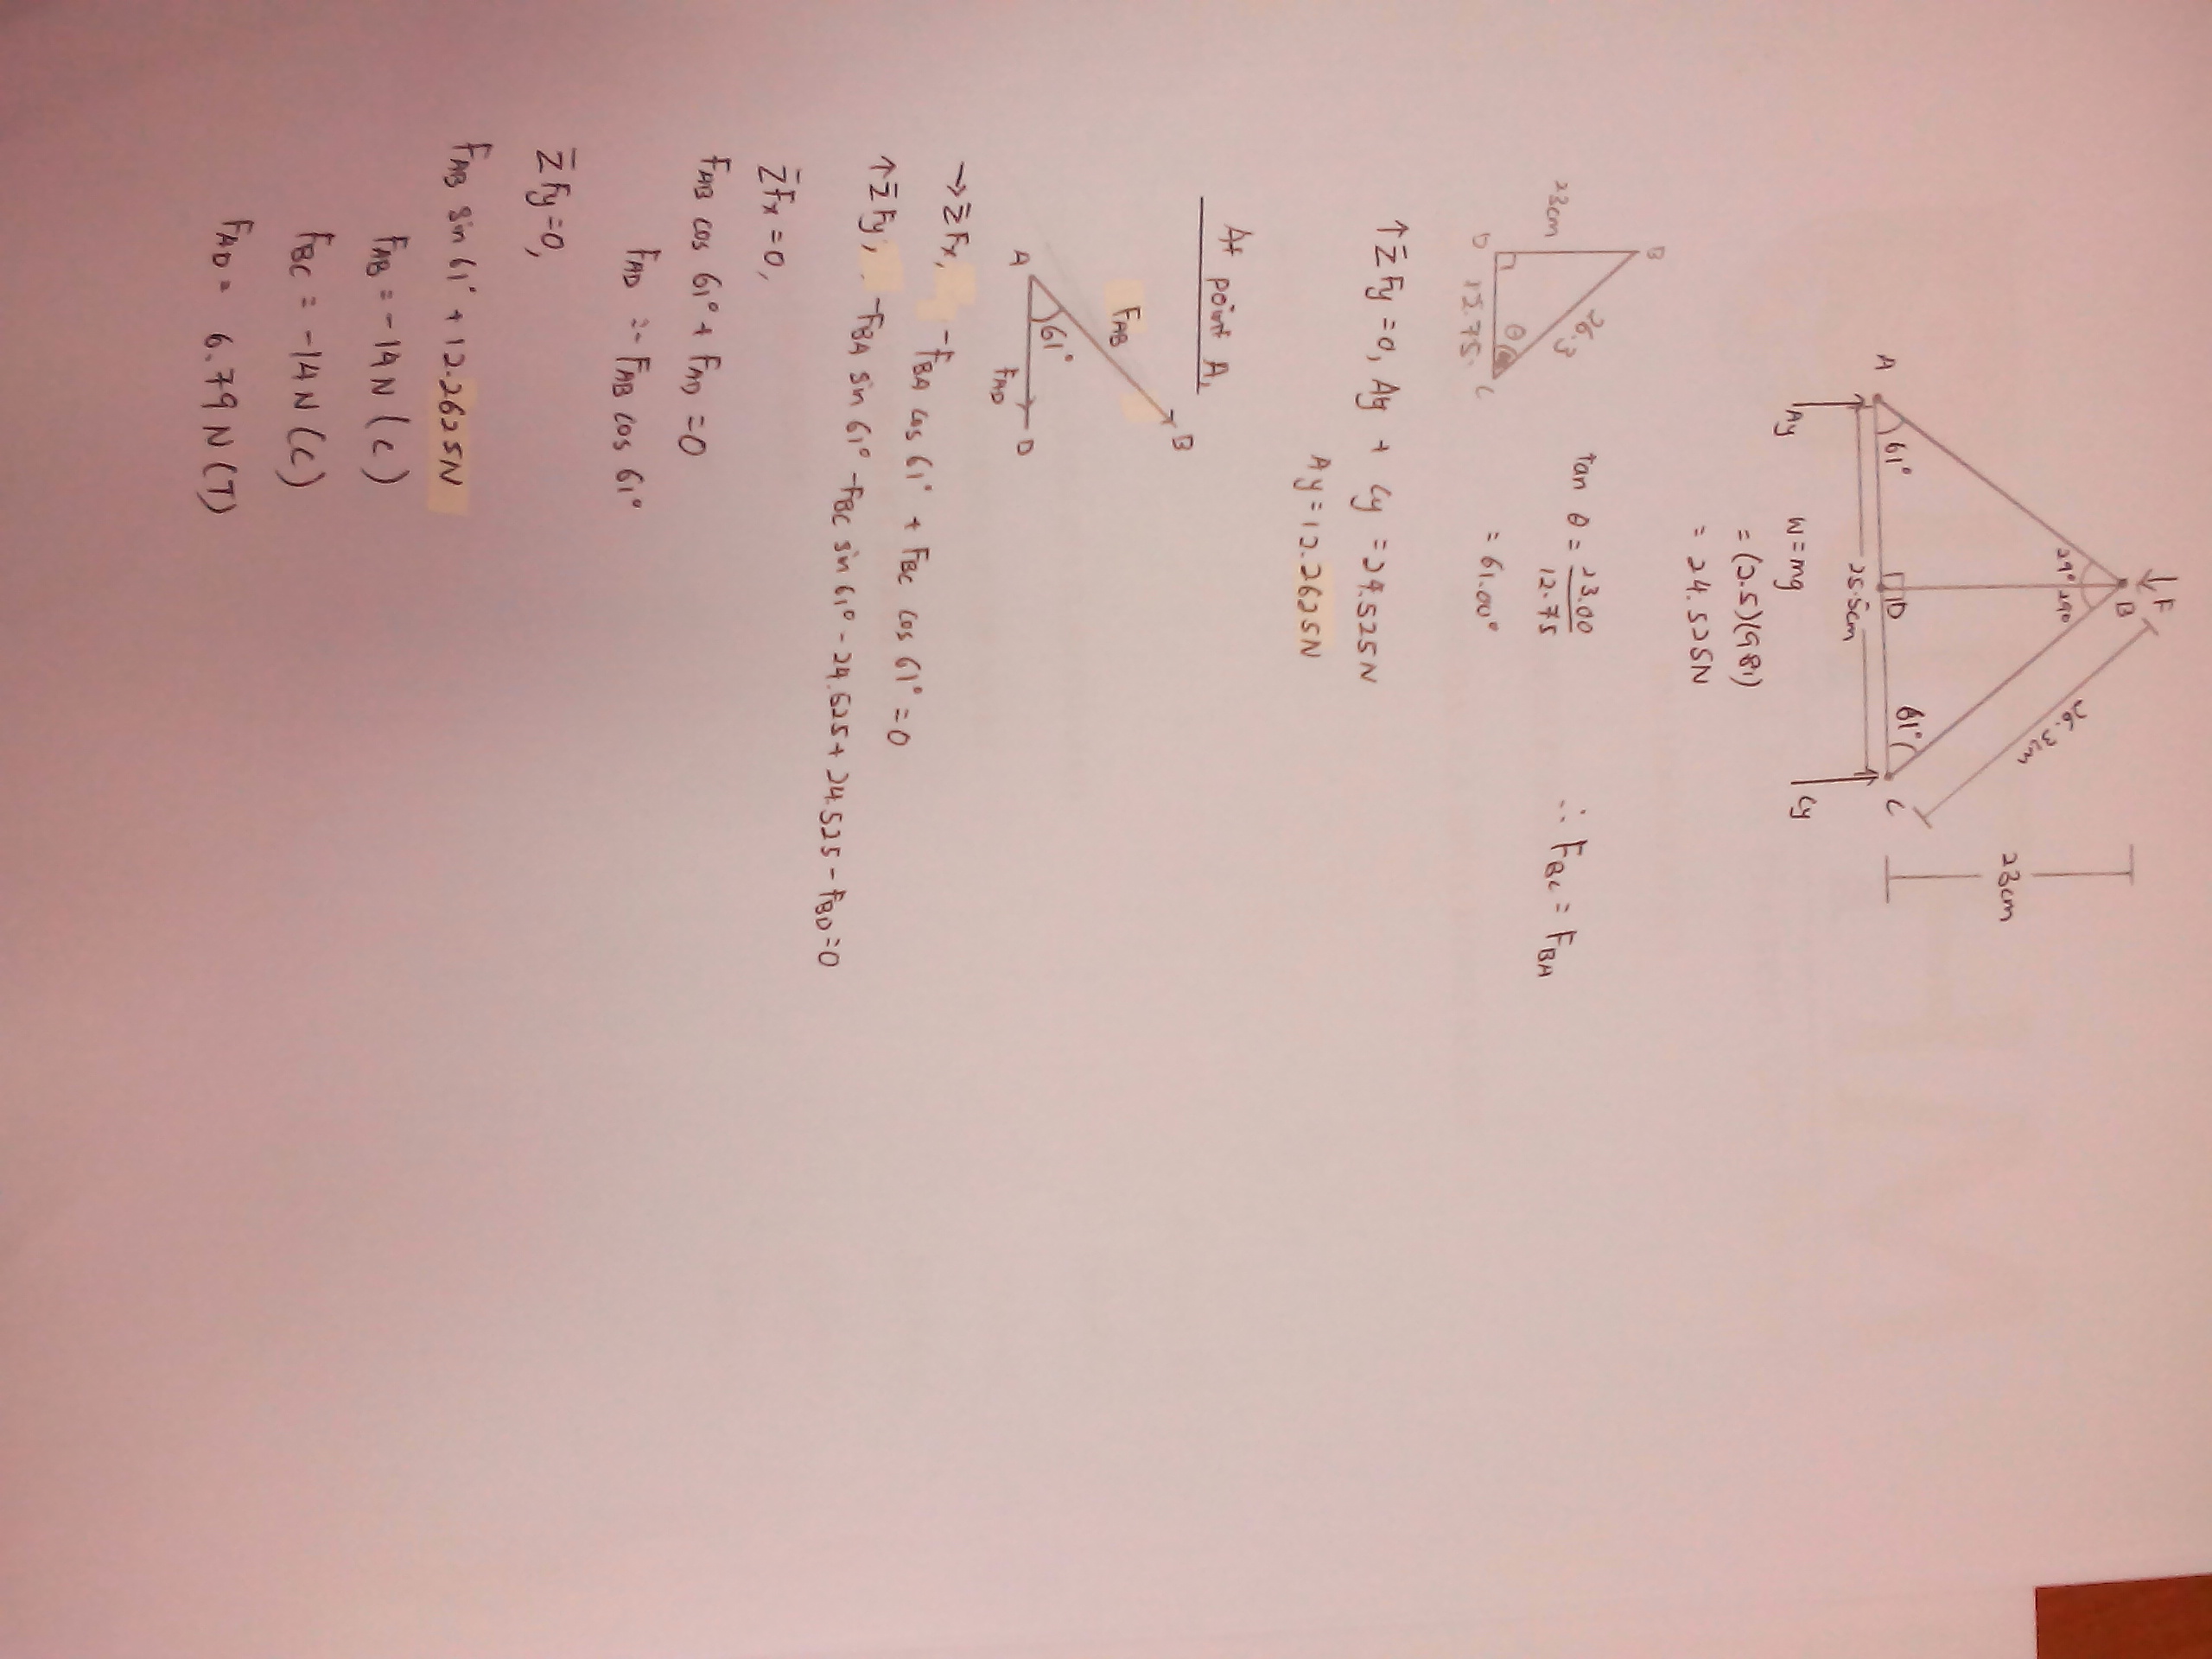 ↓F
B
29° 290
26.3cm
23cm
A
61°
D
61°
C
25.5cm
Ay
Cy
W=mg
= (2.5)(981)
= 24.525N
B
23cm
26.3
θ
D
12.75.
C
tan θ = 23.00
12.75
= 61.00°
∴ FBC = FBA
↑ΣFy=0, Ay + Cy = 24.525N
Ay=12.2625N
At point A,
FAB
B
61°
A
FAD
D
→ΣFx, -FBA cos 61° + FBC cos 61° = 0
↑ΣFy, -FBA sin 61° -FBC sin 61° - 24.525 + 24.525 - FBD=0
ΣFx=0,
FAB cos 61° + FAD =0
FAD =- FAB cos 61°
ΣFy=0,
FAB sin 61° + 12.2625N
FAB = -14N (C)
FBC = -14N (C)
FAD = 6.79N (T)